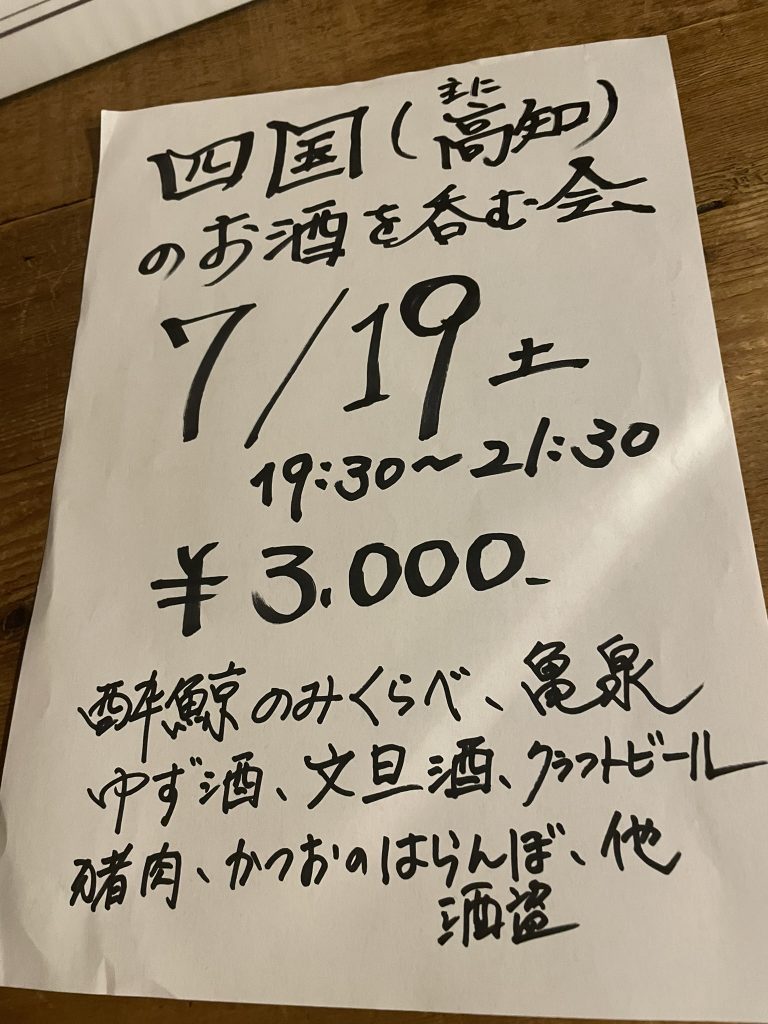 四国(主に高知)
のお酒を呑む会
7/19土
19:30〜21:30
¥3.000-
酔鯨のみくらべ、亀泉
ゆず酒、文旦酒、クラフトビール
猪肉、かつおのはらんぼ、他
酒盗